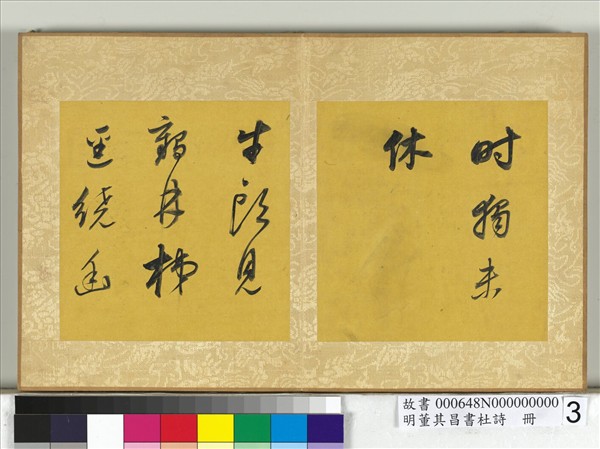 时獨未
休
牛頭見
鶴林梯
逕繞幽
故書 000648N000000000
明董其昌書杜詩 冊
3